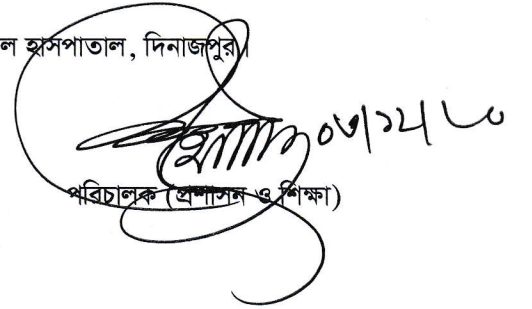 ল হাসপাতাল, দিনাজপুর।
পরিচালক (প্রশাসন ও শিক্ষা)